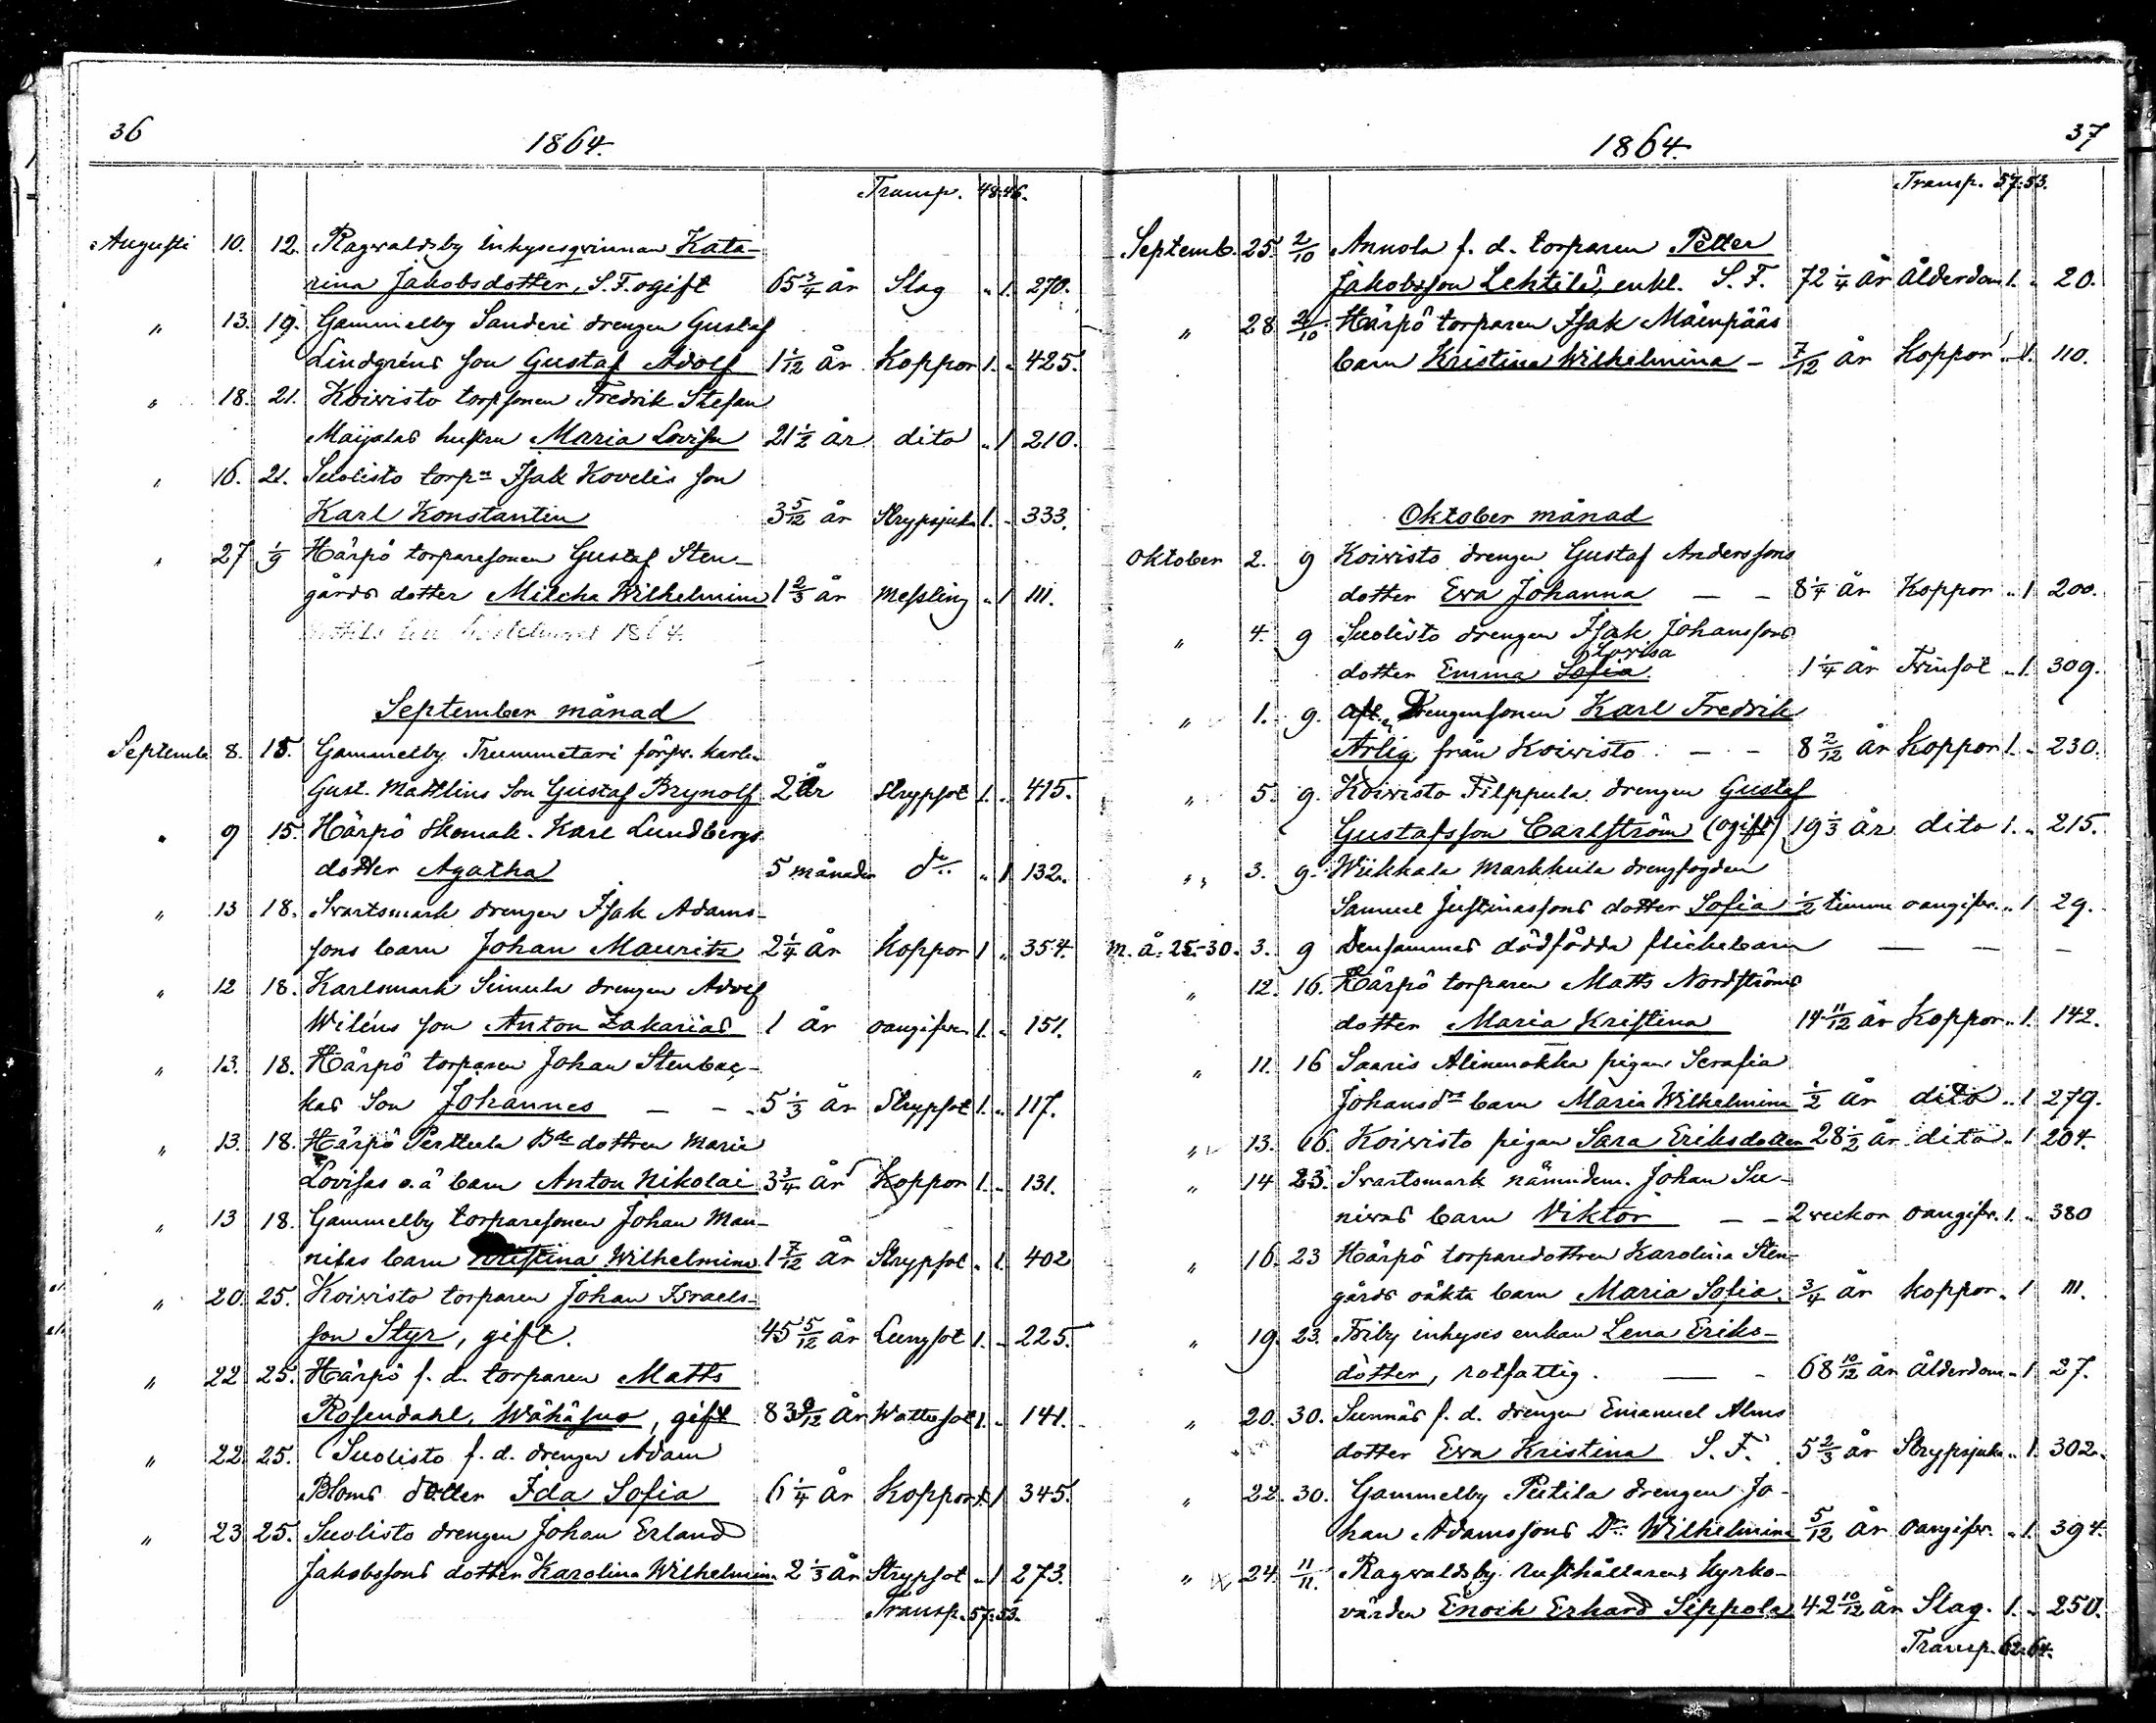 36
1864.
Transp. 48.46.
Augusti 10. 12. Ragwaldsby Inhysesqvinnan Kata-
rina Jakobsdotter, S.F. ogift 65 3/4 år Slag " 1. 270.
" 13. 19. Gammelby Sanderi drengen Gustaf
Lindgréns son Gustaf Adolf 1 1/12 år Koppor 1. " 425.
" 18. 21. Koiwisto torpsonen Fredrik Stefan
Maijalas hustru Maria Lovisa 21 1/2 år dito " 1 210.
" 16. 21. Suolisto torpn Isak Kovelis son
Karl Konstantin 3 5/12 år Strypsjuka 1. " 333.
" 27 1/9 Härpö torparesonen Gustaf Sten-
gårds dotter Milcha Wilhelmina 1 2/3 år Messling " 1 111.
1864.
September månad
Septemb. 8. 15. Gammelby Trummetari förpr. karln
Gust. Mattlins Son Gustaf Brynolf 2 år Strypsot 1. " 415.
" 9 15. Härpö Skomak. Karl Lundbergs
dotter Agatha 5 månader do " 1 132.
" 13 18. Svartsmark drengen Isak Adams-
sons barn Johan Mauritz 2 1/4 år Koppor 1 " 354.
" 12 18. Karlsmark Simula drengen Adolf
Wiléns son Anton Zakarias 1 år oangifven 1. " 151.
" 13. 18. Härpö torparen Johan Stenbac-
kas Son Johannes — — 5 1/3 år Strypsot 1. " 117.
" 13. 18. Härpö Perttula Bde dottren Maria
Lovisas o.ä barn Anton Nikolai 3 3/4 år Koppor 1. " 131.
" 13 18. Gammelby torparesonen Johan Man-
nilas barn Kristina Wilhelmina 1 7/12 år Strypsot " 1. 402
" 20. 25. Koiwisto torparen Johan Israels-
son Styr, gift. 45 5/12 år Lungsot 1. " 225.
" 22 25. Härpö f. d. torparen Matts
Rosendahl, Wähäsuo, gift 83 9/12 år Wattusot 1. " 141.
" 22 25. Suolisto f. d. drengen Adam
Bloms dotter Ida Sofia 6 1/4 år Koppor " 1 345.
" 23 25. Suolisto drengen Johan Erland
Jakobssons dotter Karolina Wilhelmina 2 1/3 år Strypsot " 1 273.
Transp. 57.53.
37
1864.
Transp. 57.53.
Septemb. 25. 2/10 Annola f. d. torparen Petter
Jakobsson Lehtilä, enkl. S. F. 72 1/4 år Ålderdom 1. " 20.
" 28 2/10 Härpö torparen Isak Mäenpääs
barn Kristina Wilhelmina - 7/12 år Koppor " 1. 110.
Oktober månad
Oktober 2. 9 Koiwisto drengen Gustaf Anderssons
dotter Eva Johanna — — 8 1/4 år Koppor " 1 200.
" 4. 9 Suolisto drengen Isak Johanssons
Lovisa
dotter Emma Sofia. 1 1/4 år Tvinsot " 1. 309.
" 1. 9. Afl. Drengensonen Karl Fredrik
Arlig från Koiwisto — - 8 2/12 år Koppor 1. " 230.
" 5. 9. Koiwisto Filppula drengen Gustaf
Gustafsson Carlström (ogift) 19 1/3 år dito 1. " 215.
" 3. 9. Wiikkala Markkula drengfogden
Samuel Justinassons dotter Sofia 1/2 timme oangifv. " 1 29.
m. å. 25-30. 3. 9 Densammes dödfödda flickebarn — — —
" 12. 16. Härpö torparen Matts Nordströms
dotter Maria Kristina 14 11/12 år Koppor " 1. 142.
" 11. 16 Saaris Alinenokka pigan Serafia
Johansdrs barn Maria Wilhelmina 1/2 år dito " 1 279.
" 13. 16. Koiwisto pigan Sara Eriksdotter 28 1/2 år dito " 1 204.
" 14 23. Svartsmark nämndem. Johan Su-
niwas barn Viktor — — 2 veckor oangifv. 1. " 380
" 16. 23 Härpö torparedottren Karolina Sten-
gårds oäkta barn Maria Sofia. 3/4 år koppor " 1 111.
" 19. 23. Friby inhyses enkan Lena Eriks-
dotter, rotfattig. — - 68 10/12 år Ålderdom " 1 27.
" 20. 30. Sunnäs f. d. drengen Emanuel Alms
dotter Eva Kristina S. F. 5 2/3 år Strypsjuka " 1. 302.
" 22. 30. Gammelby Piitila drengen Jo-
han Adamssons Dr. Wilhelmina 5/12 år oangifv. " 1. 394.
" 24. 11/11. Ragwaldsby rusthållaren, kyrko-
värden Enoch Erhard Sippola 42 10/12 år Slag. 1. " 250.
Transp. 62.64.